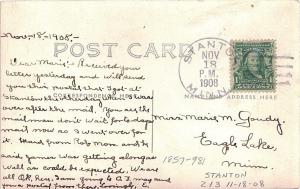 Nov-18-1908.
POST CARD
STANTON
NOV
18
P.M.
1908
MINN.
Dear Marie: Received your
letter yesterday and will send
you this postal that I got at
Stanton
over after the mail. You see the
mailman don't wait for
mail now so I went over for
it. Heard from Rob mon. and he
said James was getting along as
well as could be expected. We are
all O.K. here.
CORRESPONDENCE HERE
NAME AND ADDRESS HERE
Miss Marie M. Goudy.
Eagle Lake,
Minn
1857-981
STANTON
213 11-18-08